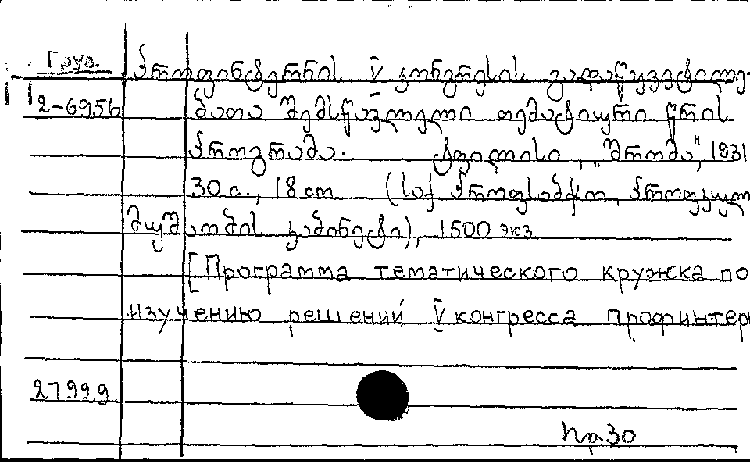 Груз.
პროფინტერნის V კონგრესის გადაწყვეტილე-
2-6956
ბათა შემსწავლელი თემატიური წრის
პროგრამა. ტფილისი, "შრომა", 1931
30 с., 18 cm (საქ პროფსაბჭო, პროფკულ
მუშაობის კაბინეტი), 1500 экз
[Программа тематического кружка по
изучению решений V конгресса профинтер
27999